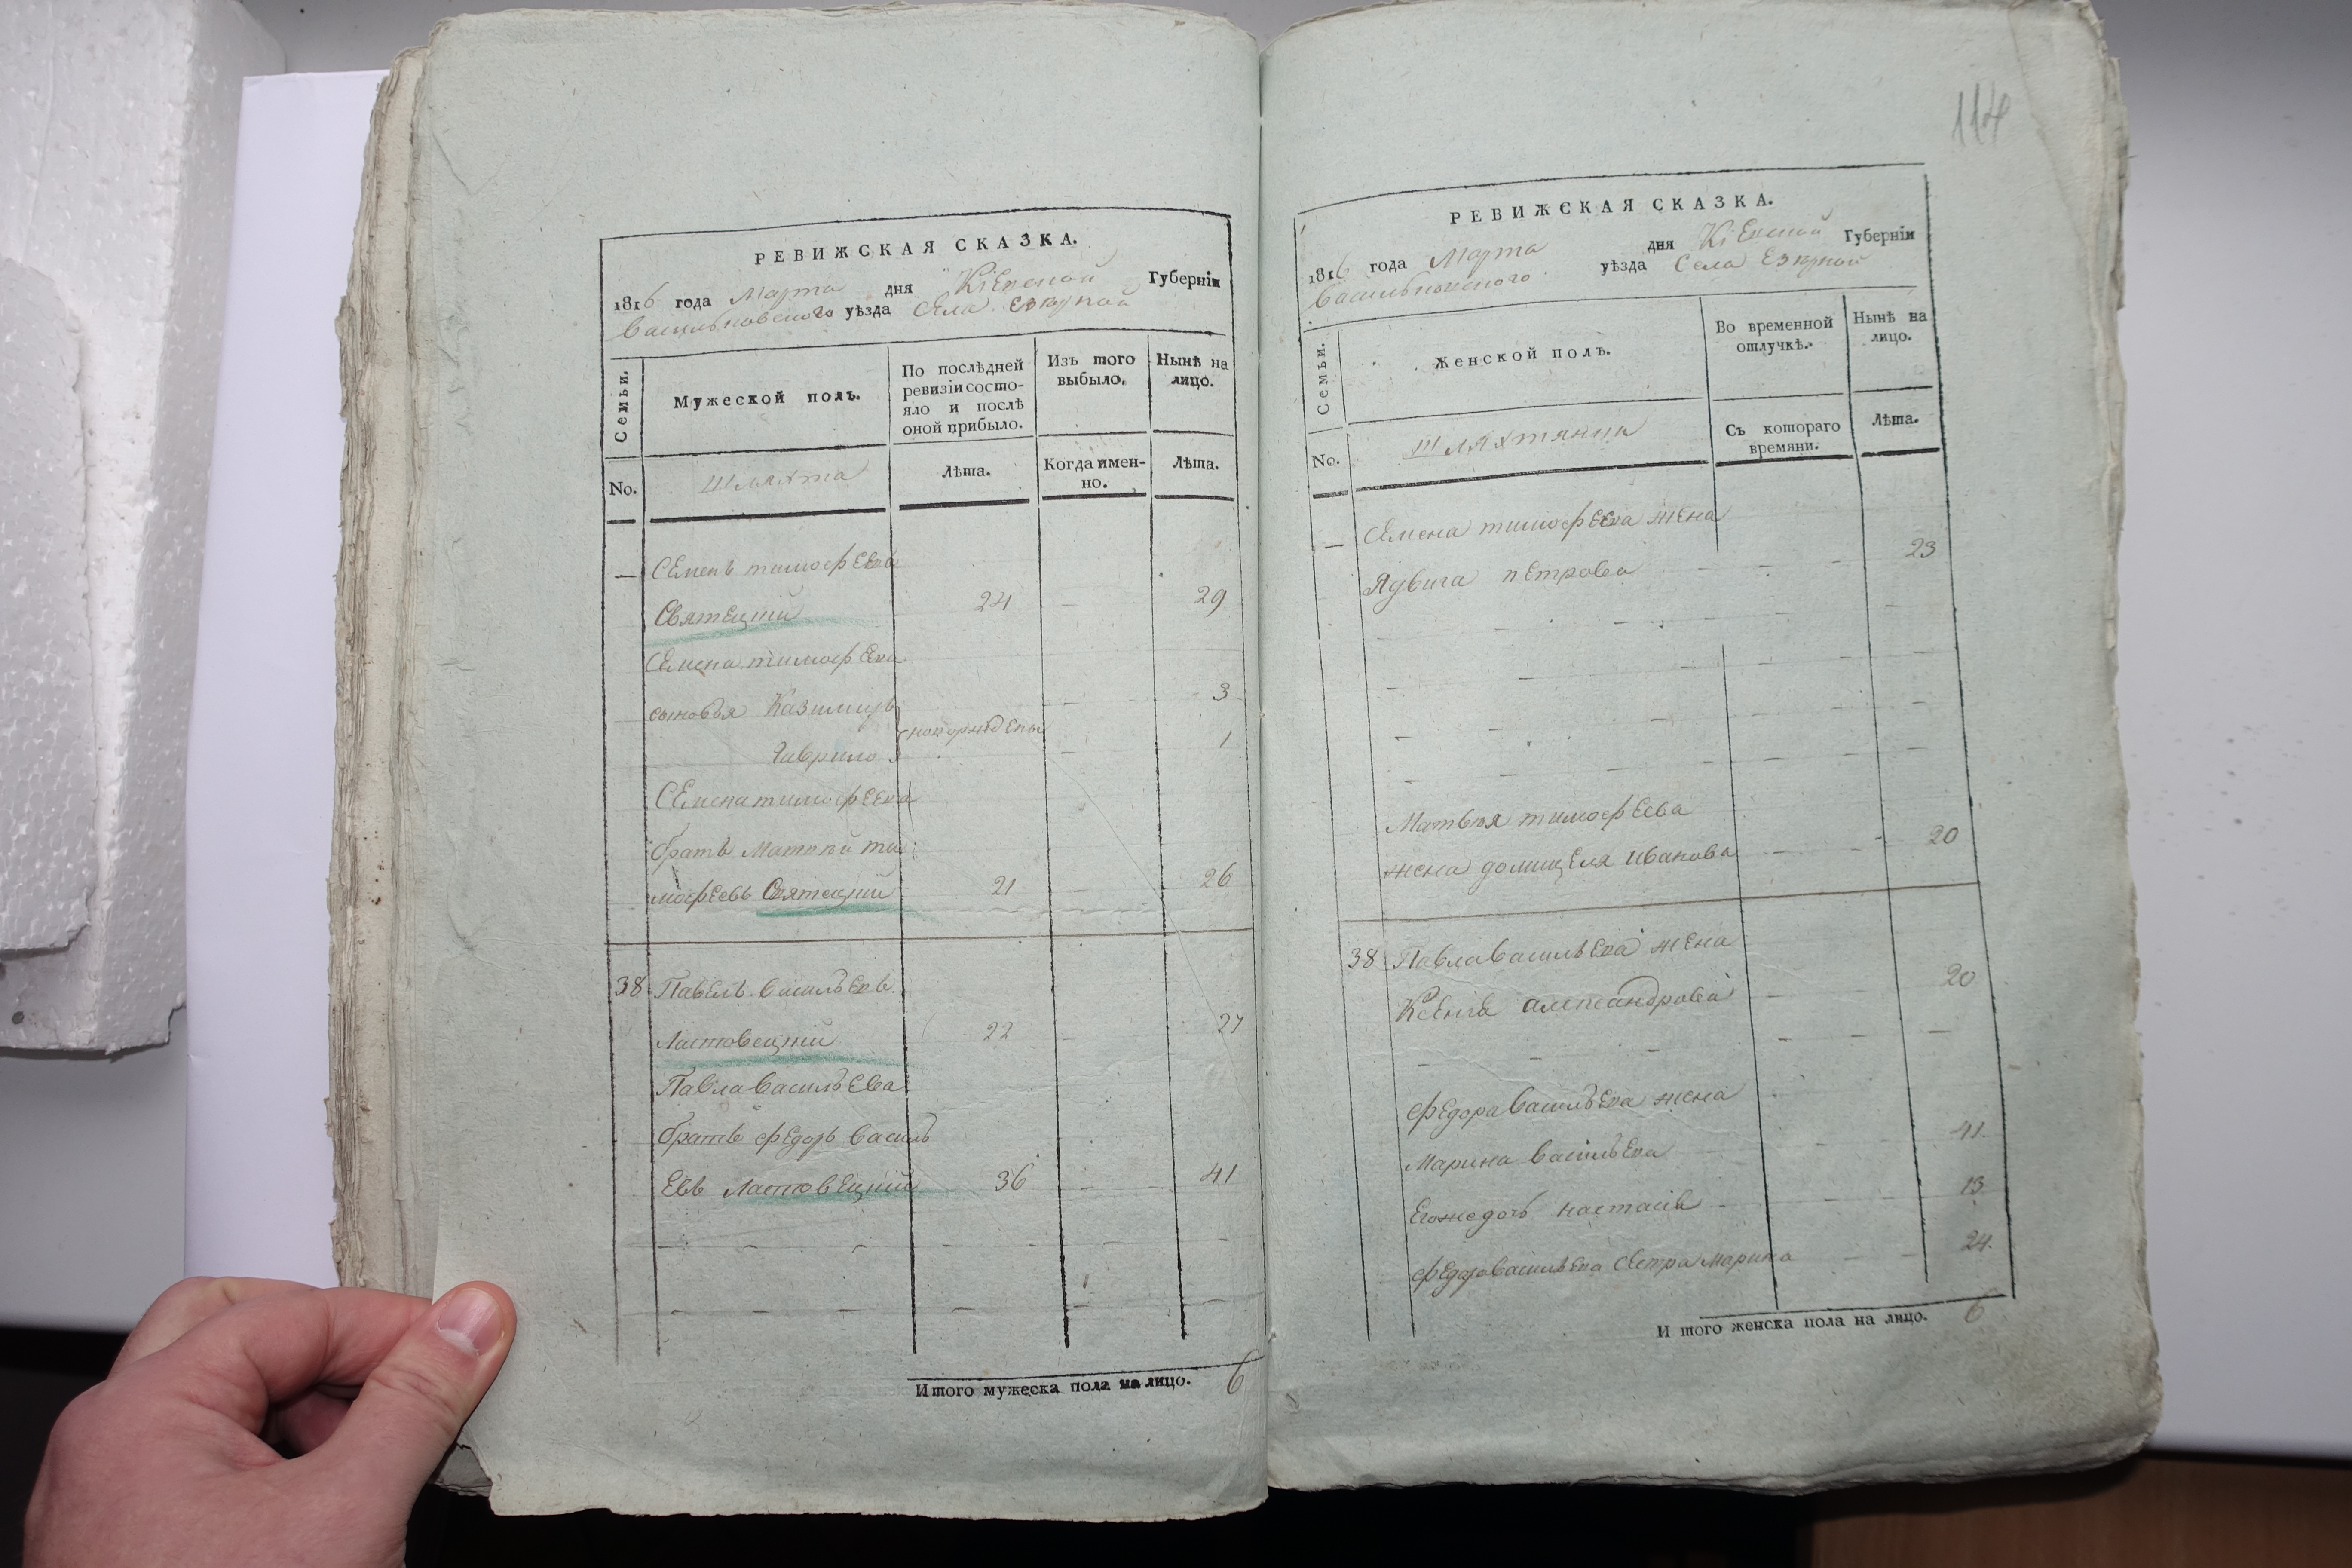 РЕВИЖСКАЯ СКАЗКА.
1816 года Марта дня Кіевской Губерніи
Васильковскаго уѣзда Села Езерной
Семьи.
Мужеской полъ.
По послѣдней ревизіи состояло и послѣ оной прибыло.
Изъ того выбыло.
Нынѣ на лицо.
No.
Шляхта
Лѣта.
Когда именно.
Лѣта.
— Семенъ тимофеевъ
Святецкій 24 — 29
Семена тимофеева
сыновья Казимиръ — 3
новорождены
Гаврило — 1
Семена тимофеева
братъ Матвѣй ти
мофеевъ Святецкій 21 — 26
38 Павелъ васильевъ
Ластовецкій 22 — 27
Павла васильева
братъ федоръ василь
евъ Ластовецкій 36 — 41
Итого мужеска пола на лицо. 6
114
РЕВИЖСКАЯ СКАЗКА.
1816 года Марта дня Кіевской Губерніи
Васильковского уѣзда Села Езерной
Семьи.
Женской полъ.
Во временной отлучкѣ.
Нынѣ на лицо.
No.
Шляхтянки
Съ котораго времяни.
Лѣта.
— Семена тимофеева жена
Ядвига петрова — — — 23
Матвѣя тимофеева
жена домицеля иванова — - 20
38 Павла васильева жена
Ксенія александрова — 20
федора васильева жена
Марина васильева 41
Егожедочь настасія 13
федора васильева сестра марина — 24
И того женска пола на лицо. 6